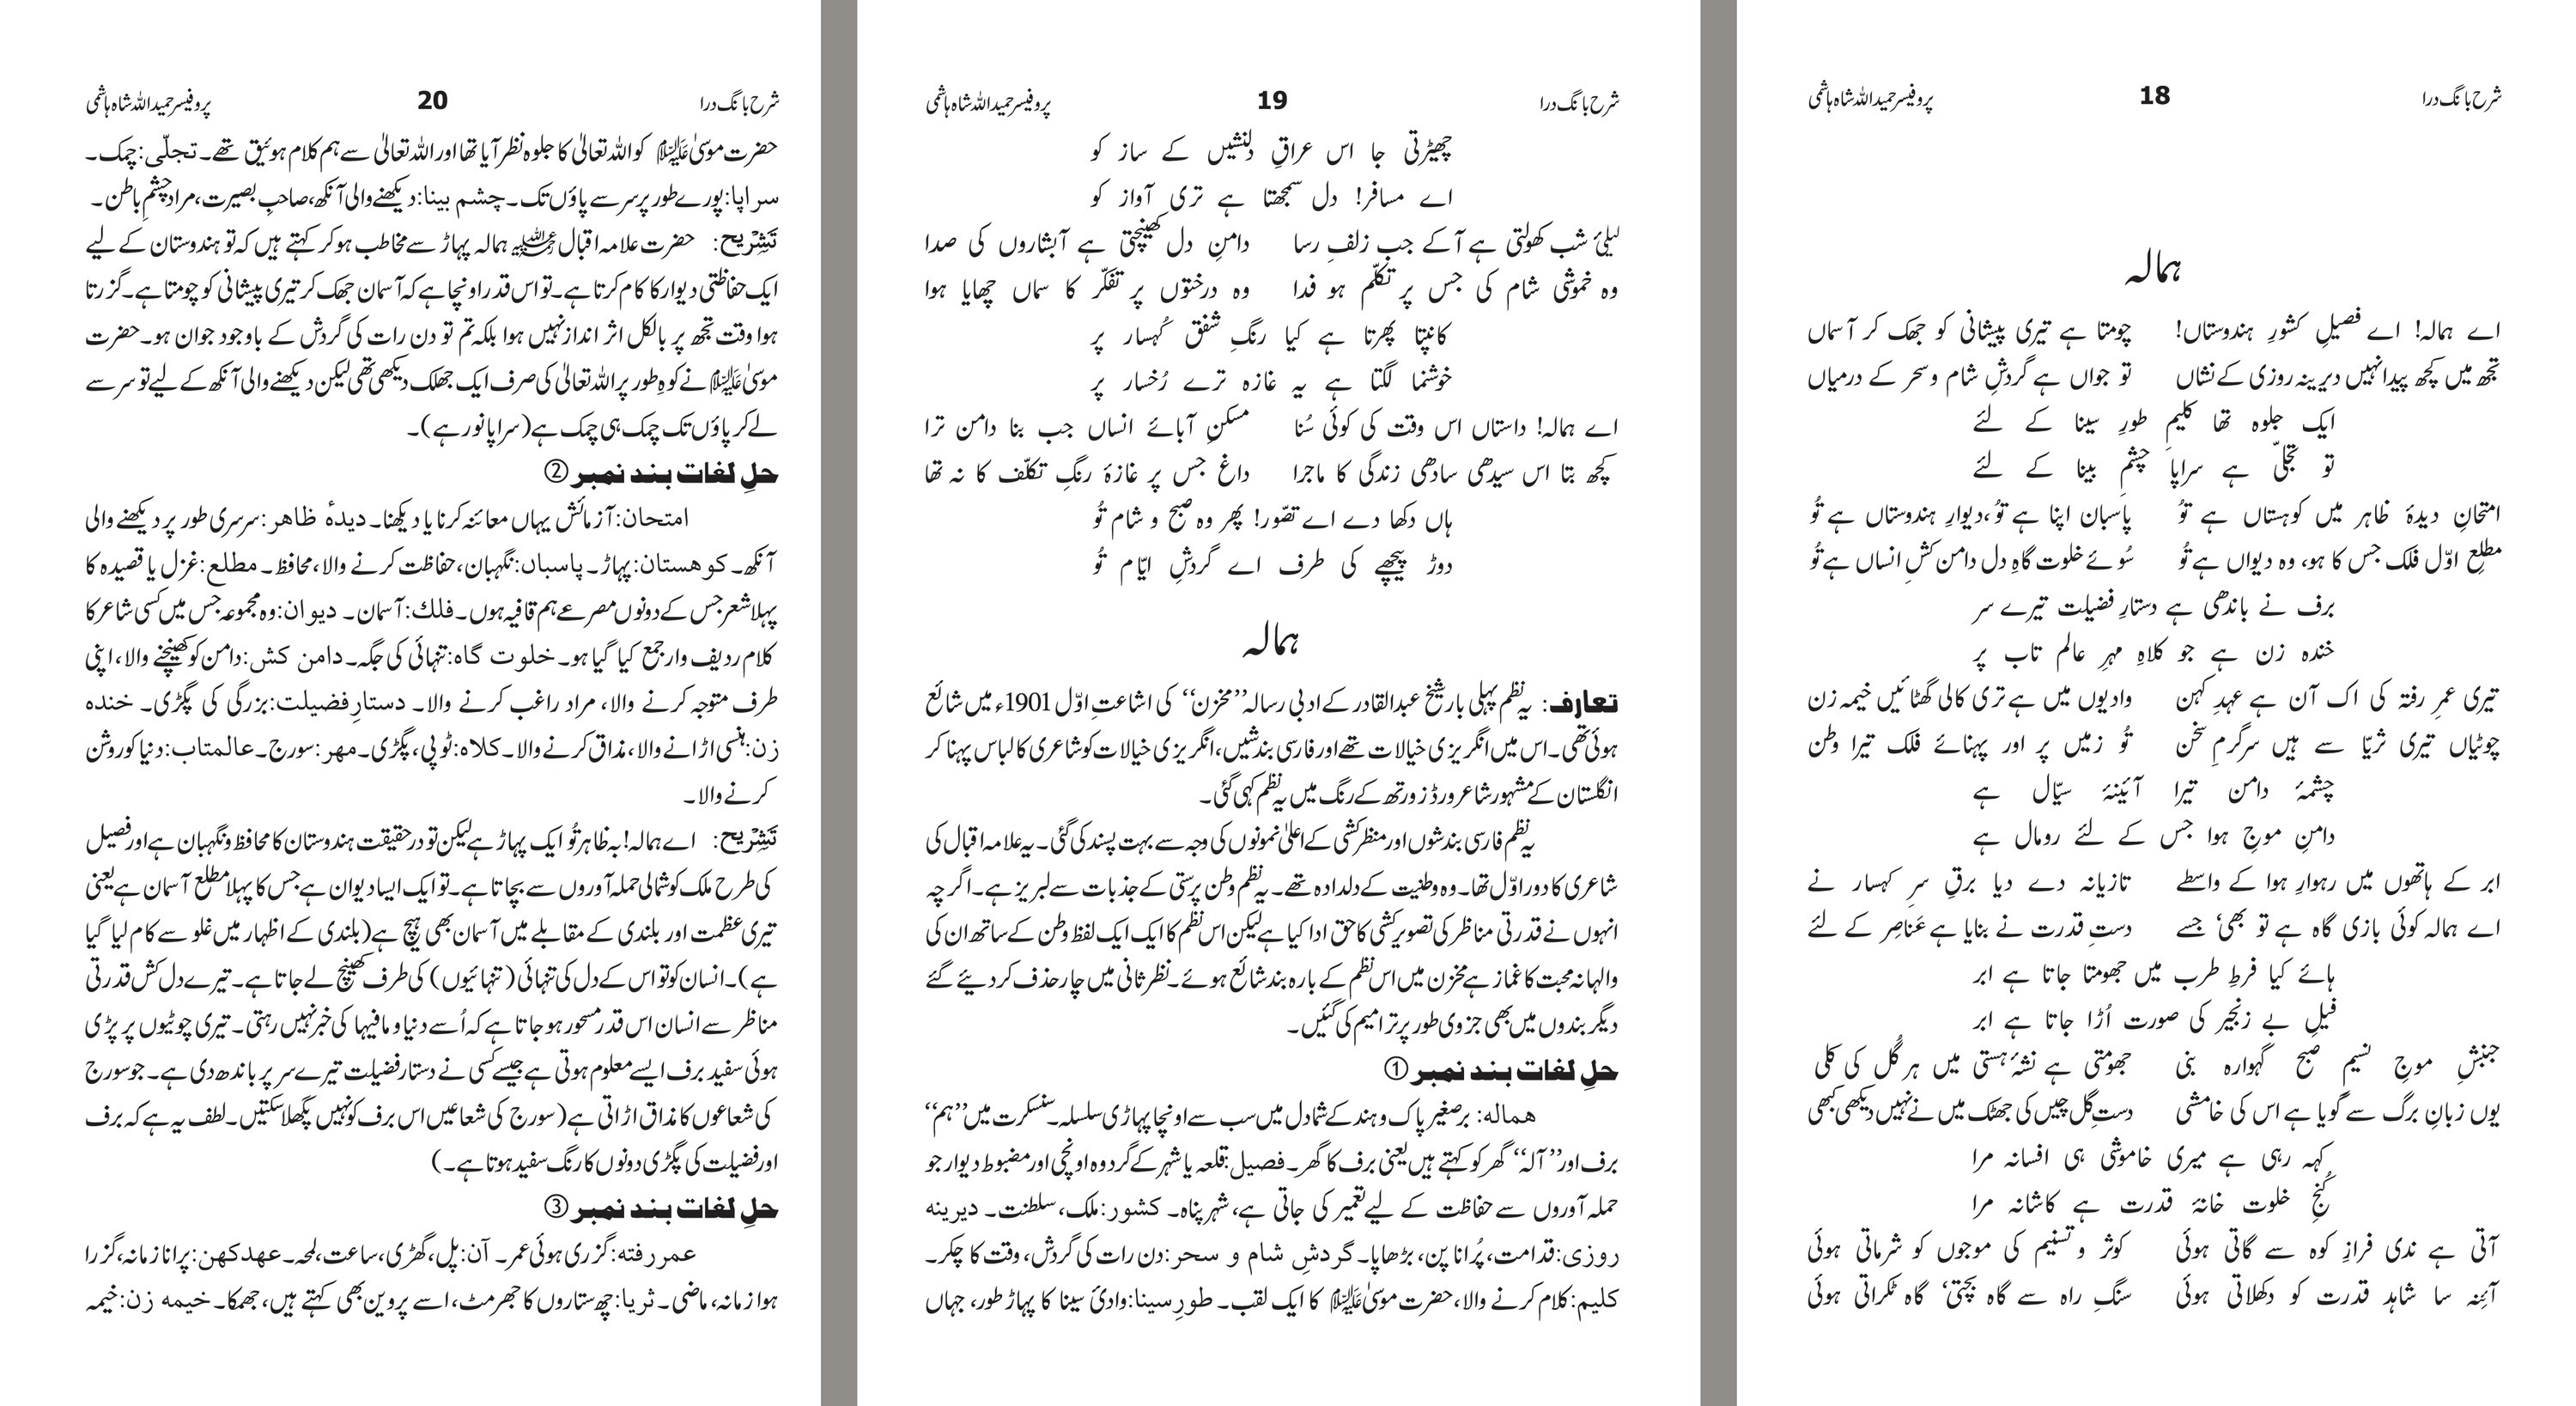 شرح بانگ درا 18 پروفیسر حمید اللہ شاہ ہاشمی
ہمالہ
اے ہمالہ! اے فصیلِ کشورِ ہندوستاں! چومتا ہے تیری پیشانی کو جھک کر آسماں
تجھ میں کچھ پیدا نہیں دیرینہ روزی کے نشاں تو جواں ہے گردشِ شام و سحر کے درمیاں
ایک جلوہ تھا کلیمِ طورِ سینا کے لئے
تو تجلّی ہے سراپا چشمِ بینا کے لئے
امتحانِ دیدۂ ظاہر میں کوہستاں ہے تُو پاسباں اپنا ہے تُو، دیوارِ ہندوستاں ہے تُو
مطلعِ اوّل فلک جس کا ہو، وہ دیواں ہے تُو سُوئے خلوت گاہِ دل دامن کشِ انساں ہے تُو
برف نے باندھی ہے دستارِ فضیلت تیرے سر
خندہ زن ہے جو کلاہِ مہرِ عالم تاب پر
تیری عمرِ رفتہ کی اک آن ہے عہدِ کہن وادیوں میں ہے تری کالی گھٹائیں خیمہ زن
چوٹیاں تیری ثریّا سے ہیں سرگرمِ سخن تُو زمیں پر اور پہنائے فلک تیرا وطن
چشمۂ دامن تیرا آئینۂ سیّال ہے
دامنِ موجِ ہوا جس کے لئے رومال ہے
ابر کے ہاتھوں میں رہوارِ ہوا کے واسطے تازیانہ دے دیا برقِ سرِ کہسار نے
اے ہمالہ کوئی بازی گاہ ہے تو بھی، جسے دستِ قدرت نے بنایا ہے عَناصِر کے لئے
ہائے کیا فرطِ طرب میں جھومتا جاتا ہے ابر
فیلِ بے زنجیر کی صورت اُڑا جاتا ہے ابر
جنبشِ موجِ نسیم صبح گہوارہ بنی جھومتی ہے نشۂ ہستی میں ہر گُل کی کلی
یوں زبانِ برگ سے گویا ہے اس کی خامشی دستِ گل چیں کی جھٹک میں نے نہیں دیکھی کبھی
کہہ رہی ہے میری خاموشی ہی افسانہ مرا
کُنجِ خلوت خانۂ قدرت ہے کاشانہ مرا
آتی ہے ندی فرازِ کوہ سے گاتی ہوئی کوثر و تسنیم کی موجوں کو شرماتی ہوئی
آئنہ سا شاہدِ قدرت کو دکھلاتی ہوئی سنگِ راہ سے گاہ بچتی، گاہ ٹکراتی ہوئی
شرح بانگ درا 19 پروفیسر حمید اللہ شاہ ہاشمی
چھیڑتی جا اس عراقِ دلنشیں کے ساز کو
اے مسافر! دل سمجھتا ہے تری آواز کو
لیلیٔ شب کھولتی ہے آ کے جب زلفِ رسا دامنِ دل کھینچتی ہے آبشاروں کی صدا
وہ خموشی شام کی جس پر تکلّم ہو فدا وہ درختوں پر تفکّر کا سماں چھایا ہوا
کانپتا پھرتا ہے کیا رنگِ شفق کُہسار پر
خوشنما لگتا ہے یہ غازہ ترے رُخسار پر
اے ہمالہ! داستاں اس وقت کی کوئی سُنا مسکنِ آبائے انساں جب بنا دامن ترا
کچھ بتا اس سیدھی سادھی زندگی کا ماجرا داغ جس پر غازۂ رنگِ تکلّف کا نہ تھا
ہاں دکھا دے اے تصّور! پھر وہ صبح و شام تُو
دوڑ پیچھے کی طرف اے گردشِ ایّام تُو
ہمالہ
تعارف: یہ نظم پہلی بار شیخ عبدالقادر کے ادبی رسالہ ’’مخزن‘‘ کی اشاعتِ اوّل 1901ء میں شائع
ہوئی تھی۔ اس میں انگریزی خیالات تھے اور فارسی بندشیں، انگریزی خیالات کو شاعری کا لباس پہنا کر
انگلستان کے مشہور شاعر ورڈزورتھ کے رنگ میں یہ نظم کہی گئی۔
یہ نظم فارسی بندشوں اور منظر کشی کے اعلیٰ نمونوں کی وجہ سے بہت پسند کی گئی۔ یہ علامہ اقبال کی
شاعری کا دور اوّل تھا۔ وہ وطنیت کے دلدادہ تھے۔ یہ نظم وطن پرستی کے جذبات سے لبریز ہے۔ اگرچہ
انہوں نے قدرتی مناظر کی تصویر کشی کا حق ادا کیا ہے لیکن اس نظم کا ایک ایک لفظ وطن کے ساتھ ان کی
والہانہ محبت کا غماز ہے مخزن میں اس نظم کے بارہ بند شائع ہوئے۔ نظر ثانی میں چار حذف کر دیئے گئے
دیگر بندوں میں بھی جزوی طور پر ترامیم کی گئیں۔
حلِ لغات بند نمبر ①
ھمالہ: برصغیر پاک و ہند کے شمال میں سب سے اونچا پہاڑی سلسلہ۔ سنسکرت میں ’’ہم‘‘
برف اور ’’آلہ‘‘ گھر کو کہتے ہیں یعنی برف کا گھر۔ فصیل: قلعہ یا شہر کے گرد وہ اونچی اور مضبوط دیوار جو
حملہ آوروں سے حفاظت کے لیے تعمیر کی جاتی ہے، شہر پناہ۔ کشور: ملک، سلطنت۔ دیرینہ
روزی: قدامت، پُرانا پن، بڑھاپا۔ گردشِ شام و سحر: دن رات کی گردش، وقت کا چکر۔
کلیم: کلام کرنے والا، حضرت موسیٰ علیہ السلام کا ایک لقب۔ طورِ سینا: وادیٔ سینا کا پہاڑ طور، جہاں
شرح بانگ درا 20 پروفیسر حمید اللہ شاہ ہاشمی
حضرت موسیٰ علیہ السلام کو اللہ تعالیٰ کا جلوہ نظر آیا تھا اور اللہ تعالیٰ سے ہم کلام ہوئے تھے۔ تجلّی: چمک۔
سراپا: پورے طور پر سر سے پاؤں تک۔ چشم بینا: دیکھنے والی آنکھ، صاحبِ بصیرت، مراد چشمِ باطن۔
تَشرِیح: حضرت علامہ اقبال رحمۃ اللہ علیہ ہمالہ پہاڑ سے مخاطب ہو کر کہتے ہیں کہ تو ہندوستان کے لیے
ایک حفاظتی دیوار کا کام کرتا ہے۔ تو اس قدر اونچا ہے کہ آسمان جھک کر تیری پیشانی کو چومتا ہے۔ گزرتا
ہوا وقت تجھ پر بالکل اثر انداز نہیں ہوا بلکہ تم تو دن رات کی گردش کے باوجود جوان ہو۔ حضرت
موسیٰ علیہ السلام نے کوہِ طور پر اللہ تعالیٰ کی صرف ایک جھلک دیکھی تھی لیکن دیکھنے والی آنکھ کے لیے تو سر سے
لے کر پاؤں تک چمک ہی چمک ہے (سراپا نور ہے)۔
حلِ لغات بند نمبر ②
امتحان: آزمائش یہاں معائنہ کرنا یا دیکھنا۔ دیدۂ ظاھر: سرسری طور پر دیکھنے والی
آنکھ۔ کوھستان: پہاڑ۔ پاسباں: نگہبان، حفاظت کرنے والا، محافظ۔ مطلع: غزل یا قصیدہ کا
پہلا شعر جس کے دونوں مصرعے ہم قافیہ ہوں۔ فلك: آسمان۔ دیوان: وہ مجموعہ جس میں کسی شاعر کا
کلام ردیف وار جمع کیا گیا ہو۔ خلوت گاہ: تنہائی کی جگہ۔ دامن کش: دامن کو کھینچنے والا، اپنی
طرف متوجہ کرنے والا، مراد راغب کرنے والا۔ دستارِ فضیلت: بزرگی کی پگڑی۔ خندہ
زن: ہنسی اڑانے والا، مذاق کرنے والا۔ کلاہ: ٹوپی، پگڑی۔ مھر: سورج۔ عالمتاب: دنیا کو روشن
کرنے والا۔
تَشرِیح: اے ہمالہ! بہ ظاہر تُو ایک پہاڑ ہے لیکن تو درحقیقت ہندوستان کا محافظ و نگہبان ہے اور فصیل
کی طرح ملک کو شمالی حملہ آوروں سے بچاتا ہے۔ تو ایک ایسا دیوان ہے جس کا پہلا مطلع آسمان ہے یعنی
تیری عظمت اور بلندی کے مقابلے میں آسمان بھی ہیچ ہے (بلندی کے اظہار میں غلو سے کام لیا گیا
ہے)۔ انسان کو تو اس کے دل کی تنہائی (تنہائیوں) کی طرف کھینچ لے جاتا ہے۔ تیرے دل کش قدرتی
مناظر سے انسان اس قدر مسحور ہو جاتا ہے کہ اُسے دنیا و مافیہا کی خبر نہیں رہتی۔ تیری چوٹیوں پر پڑی
ہوئی سفید برف ایسے معلوم ہوتی ہے جیسے کسی نے دستار فضیلت تیرے سر پر باندھ دی ہے۔ جو سورج
کی شعاعوں کا مذاق اڑاتی ہے (سورج کی شعاعیں اس برف کو نہیں پگھلا سکتیں۔ لطف یہ ہے کہ برف
اور فضیلت کی پگڑی دونوں کا رنگ سفید ہوتا ہے۔)
حلِ لغات بند نمبر ③
عمر رفتہ: گزری ہوئی عمر۔ آن: پل، گھڑی، ساعت، لمحہ۔ عھد کھن: پرانا زمانہ، گزرا
ہوا زمانہ، ماضی۔ ثریا: چھ ستاروں کا جھرمٹ، اسے پروین بھی کہتے ہیں، جھمکا۔ خیمہ زن: خیمہ